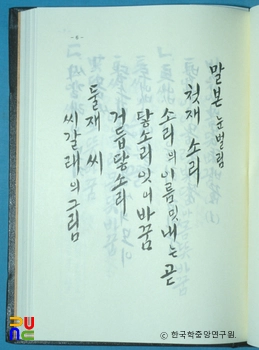 -6-
말본 눈벌림
첫재 소리
소리의 이름 밋 내는 곧
닿소리 잇어 바꿈
거듭 닿소리
둘재 씨
씨갈래의 그림
© 한국학중앙연구원.